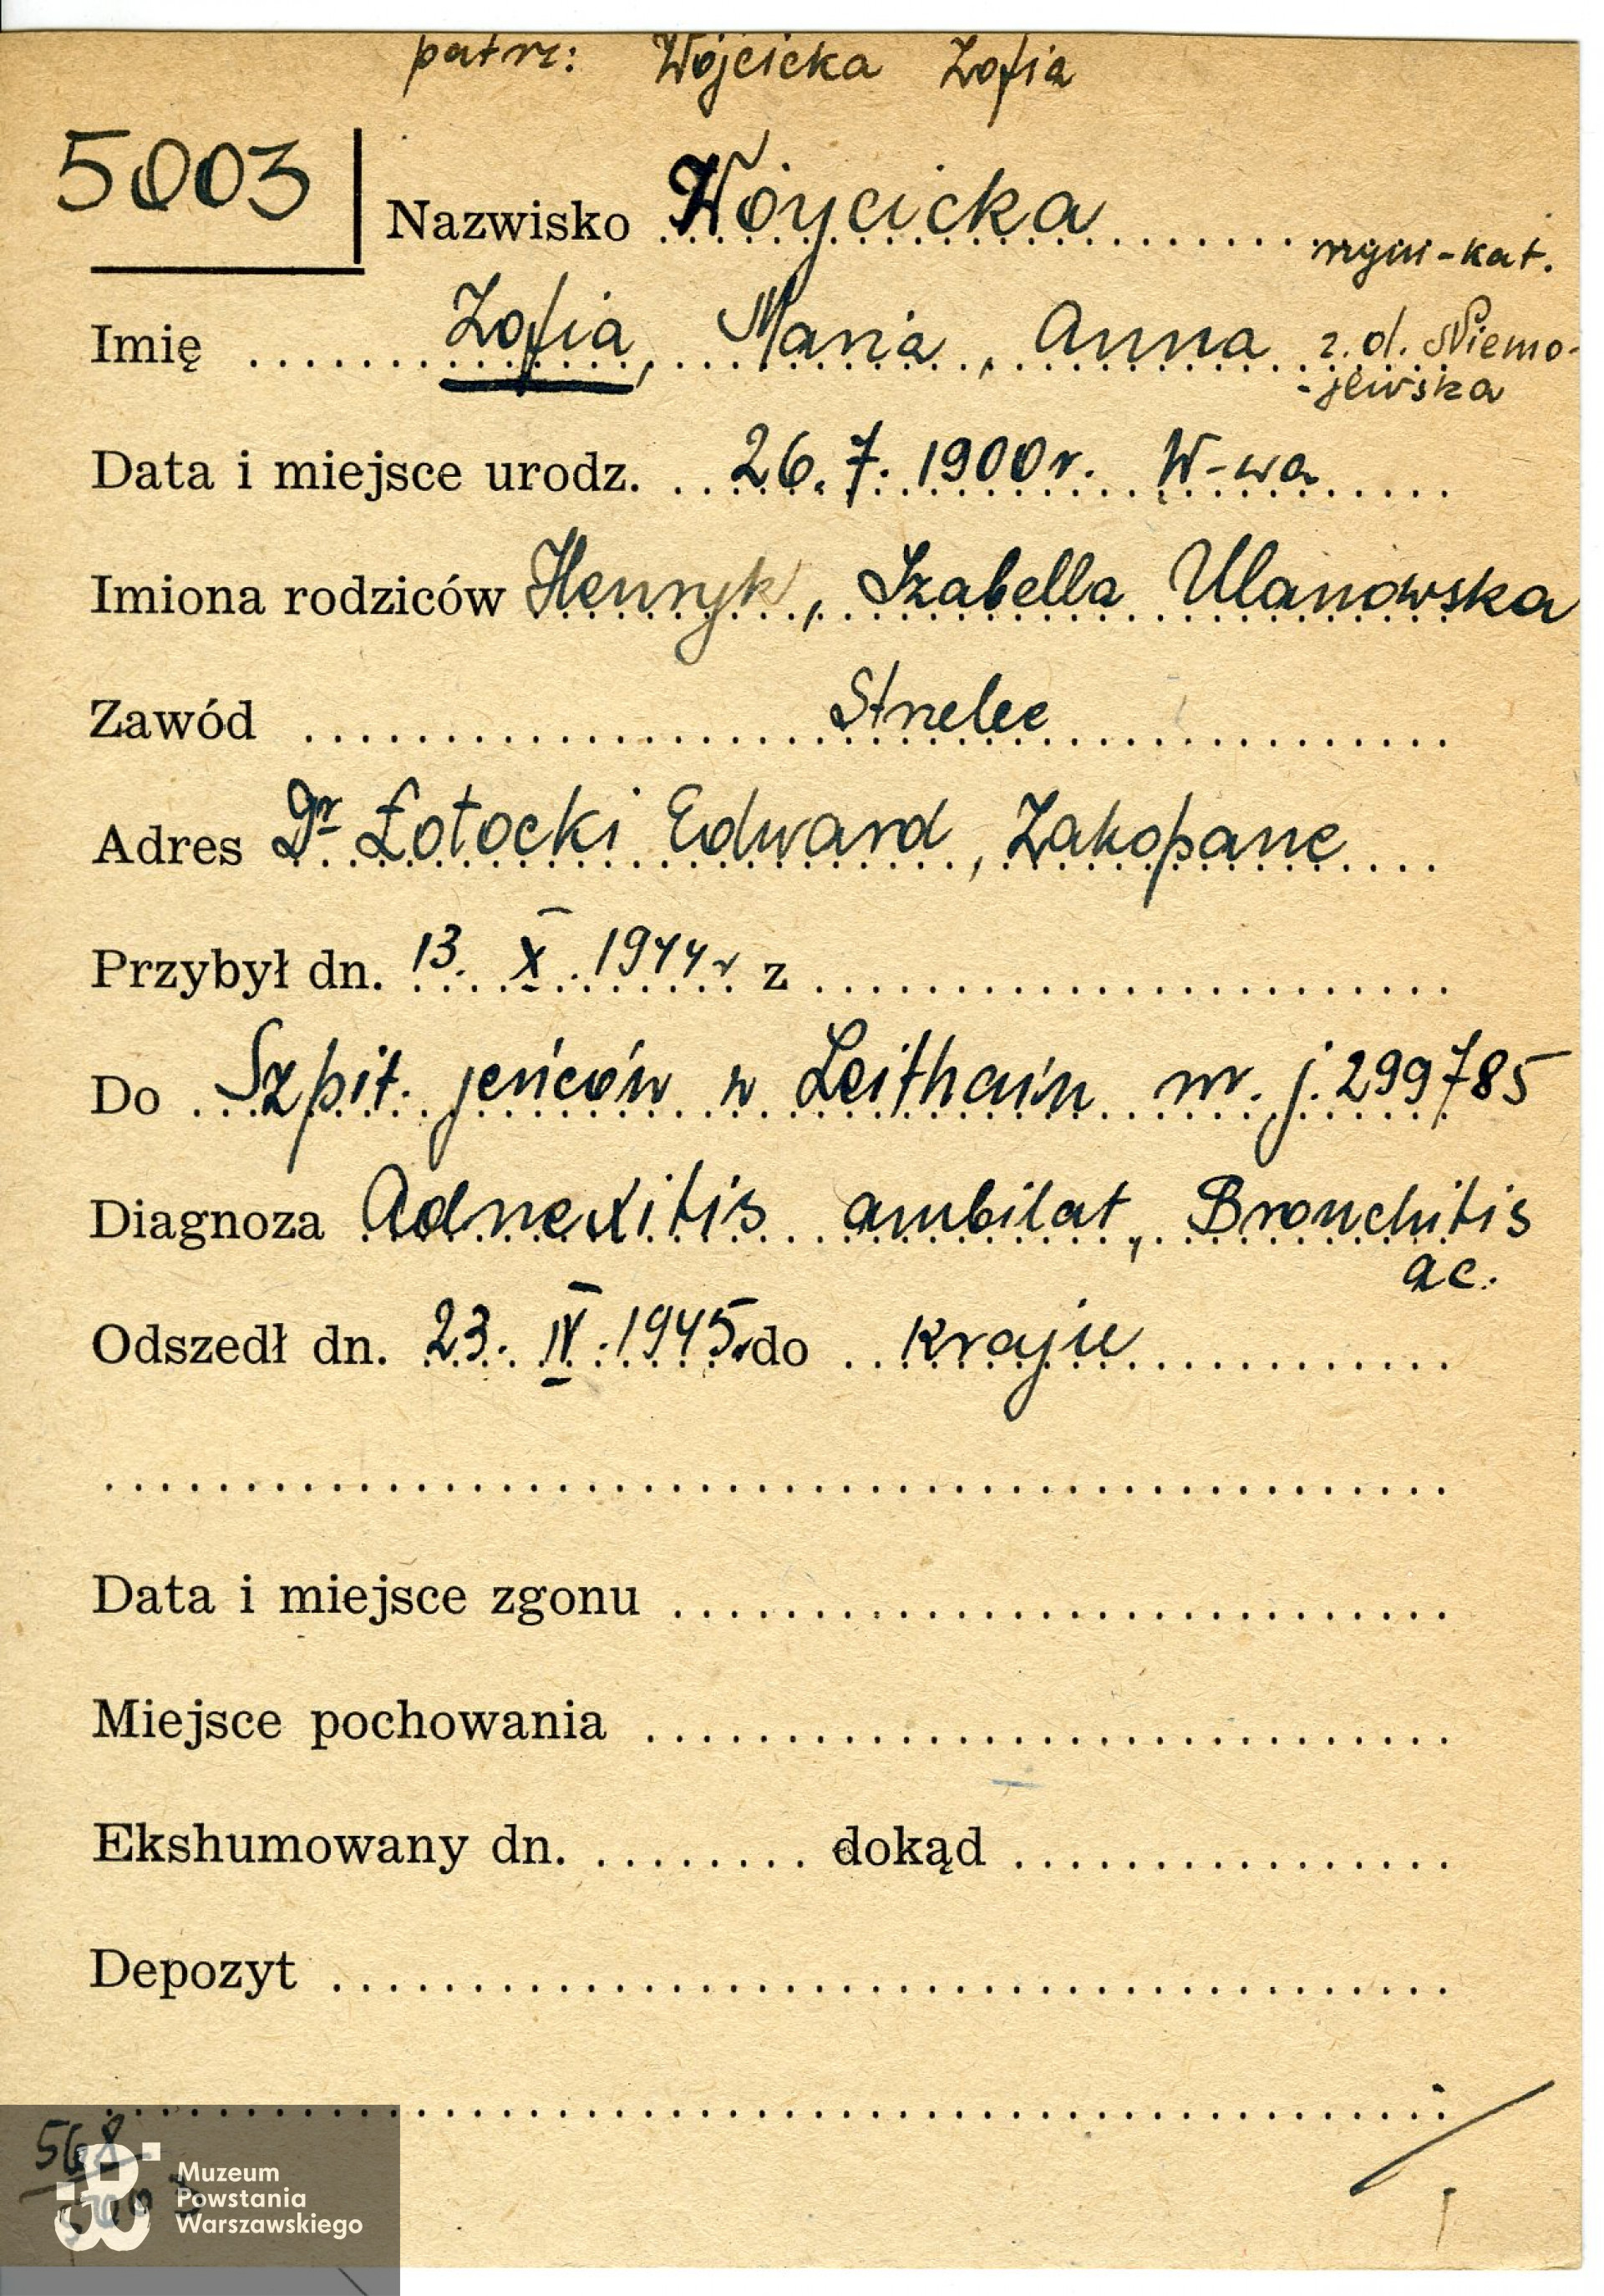 patrz: Wójcicka Zofia
5003
Nazwisko Wóycicka
rzym-kat.
Imię Zofia, Maria, Anna z. d. Niemo-
-jewska
Data i miejsce urodz. 26. 7. 1900 r. W-wa
Imiona rodziców Henryk, Izabella Ulanowska
Zawód Strzelec
Adres Dr Łotocki Edward, Zakopane
Przybył dn. 13. X. 1944 r z
Do Szpit. jeńców w Zeithain nr. j. 299785
Diagnoza Adnexitis ambilat, Bronchitis
ac.
Odszedł dn. 23. IV. 1945 r do kraju
Data i miejsce zgonu
Miejsce pochowania
Ekshumowany dn. dokąd
Depozyt
568
5003
Muzeum
Powstania
Warszawskiego